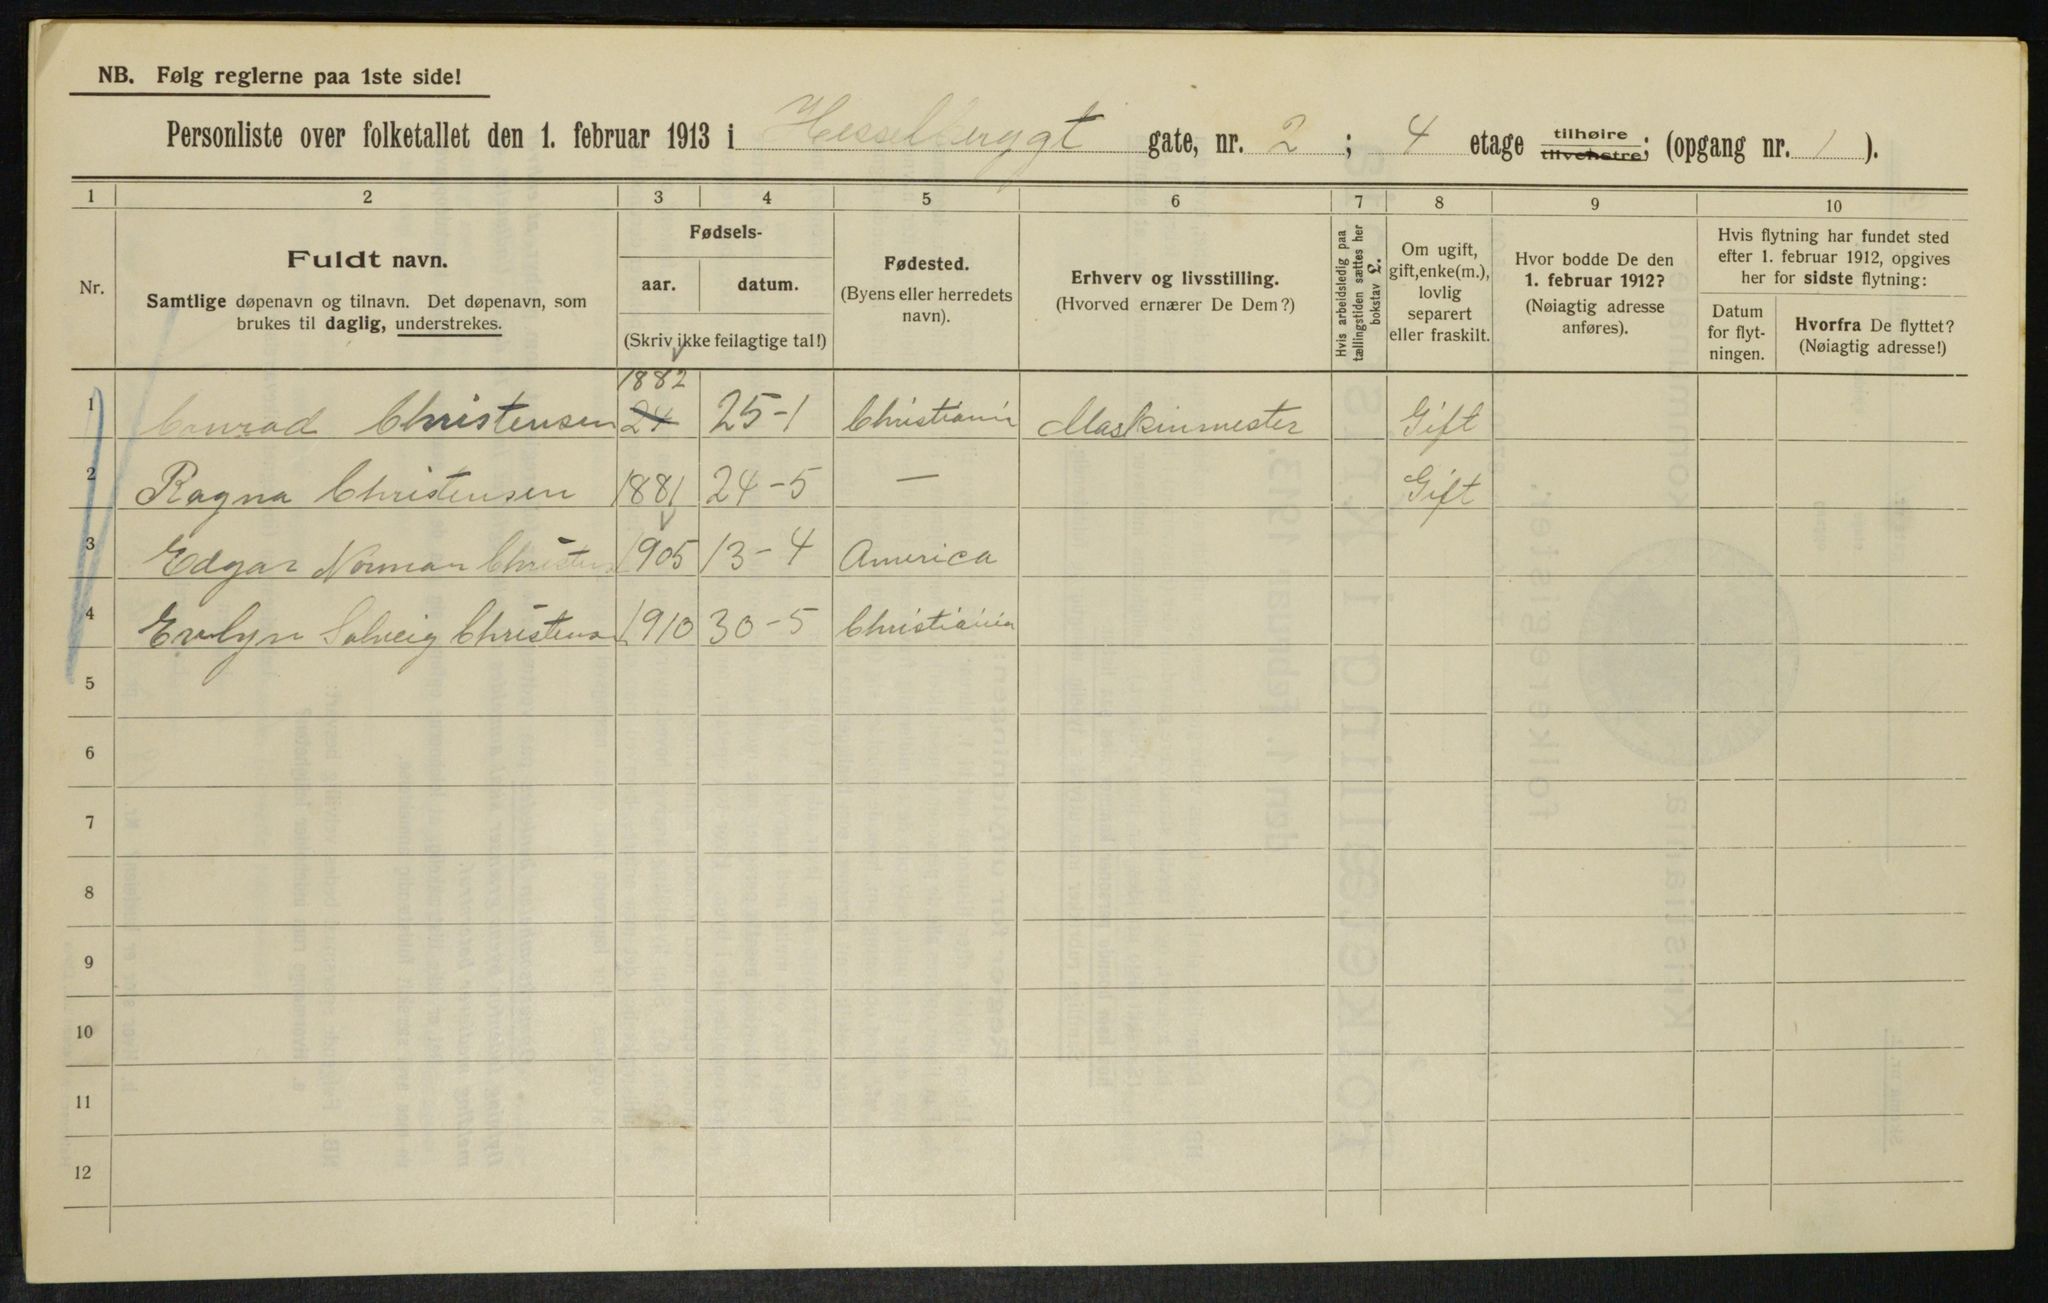 NB. Følg reglerne paa 1ste side!
Personliste over folketallet den 1. februar 1913 i Hesselberggt gate, nr. 2 ; 4 etage tilhøire tilvenstre; (opgang nr. 1 ).
1 2 3 4 5 6 7 8 9 10
Nr.
Fuldt navn.
Samtlige døpenavn og tilnavn. Det døpenavn, som
brukes til daglig, understrekes.
Fødsels-
aar. datum.
(Skriv ikke feilagtige tal!)
Fødested.
(Byens eller herredets
navn).
Erhverv og livsstilling.
(Hvorved ernærer De Dem?)
Hvis arbeidsledig paa
tællingstiden sættes her
bokstav L.
Om ugift,
gift, enke(m.),
lovlig
separert
eller fraskilt.
Hvor bodde De den
1. februar 1912?
(Nøiagtig adresse
anføres).
Hvis flytning har fundet sted
efter 1. februar 1912, opgives
her for sidste flytning:
Datum
for flyt-
ningen.
Hvorfra De flyttet?
(Nøiagtig adresse!)
1882
1 Conrad Christensen 24 25-1 Christiania Maskinmester Gift
2 Ragna Christensen 1881 24-5 — Gift
3 Edgar Norman Christens 1905 13-4 America
4 Evelyn Solveig Christensen 1910 30-5 Christiania
5
6
7
8
9
10
11
12